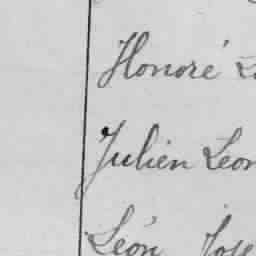 Honoré
Julien Leon
Léon Jose